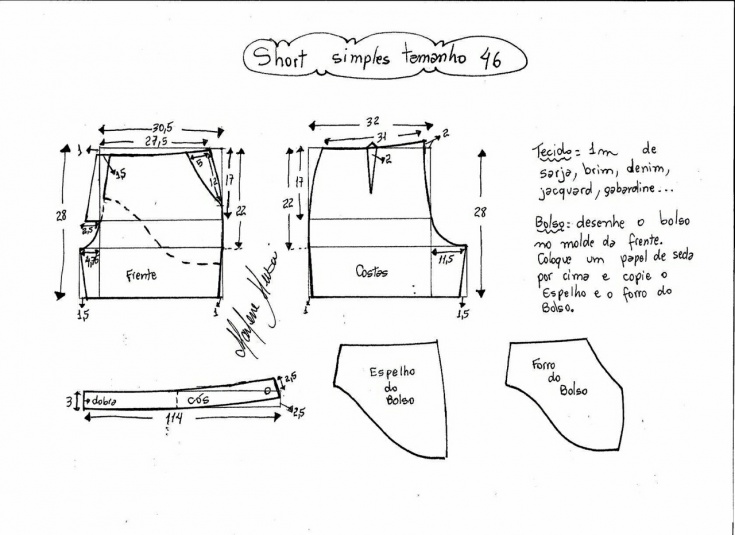 Short simples tamanho 46
30,5
27,5
1
1,5
5
12
17
22
28
2,5
4,75
Frente
1,5
1
32
31
2
2
17
22
28
11,5
Costas
1
1,5
Tecido = 1m de
sarja, brim, denim,
jacquard, gabardine...
Bolso: desenhe o bolso
no molde da frente.
Coloque um papel de seda
por cima e copie o
Espelho e o forro do
Bolso.
3
dobra
cós
2,5
2,5
114
Espelho
do
Bolso
Forro
do
Bolso